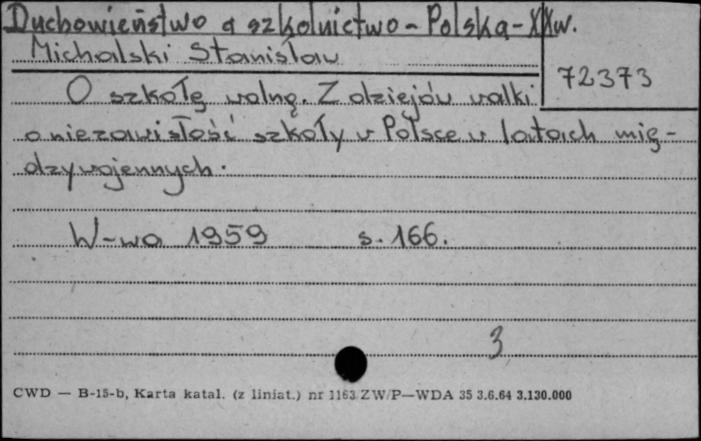 Duchowieństwo a szkolnictwo - Polska - XX w.
Michalski Stanisław
72373
O szkołę wolną. Z dziejów walki
o niezawisłość szkoły w Polsce w latach mię-
dzywojennych.
W-wa 1959 s. 166.
3
CWD — B-15-b, Karta katal. (z liniat.) nr 1163 ZW/P—WDA 35 3.6.64 3.130.000